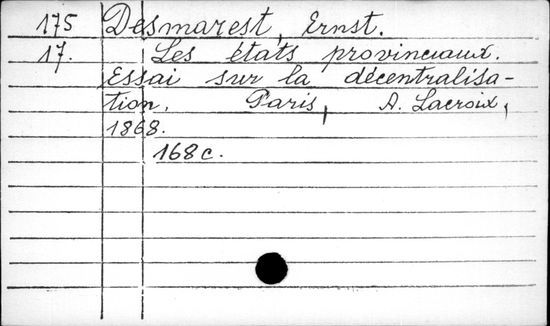 175 Desmarest, Ernst.
17. Les états provinciaux.
Essai sur la décentralisa-
tion. Paris, A. Lacroix,
1868.
168 c.